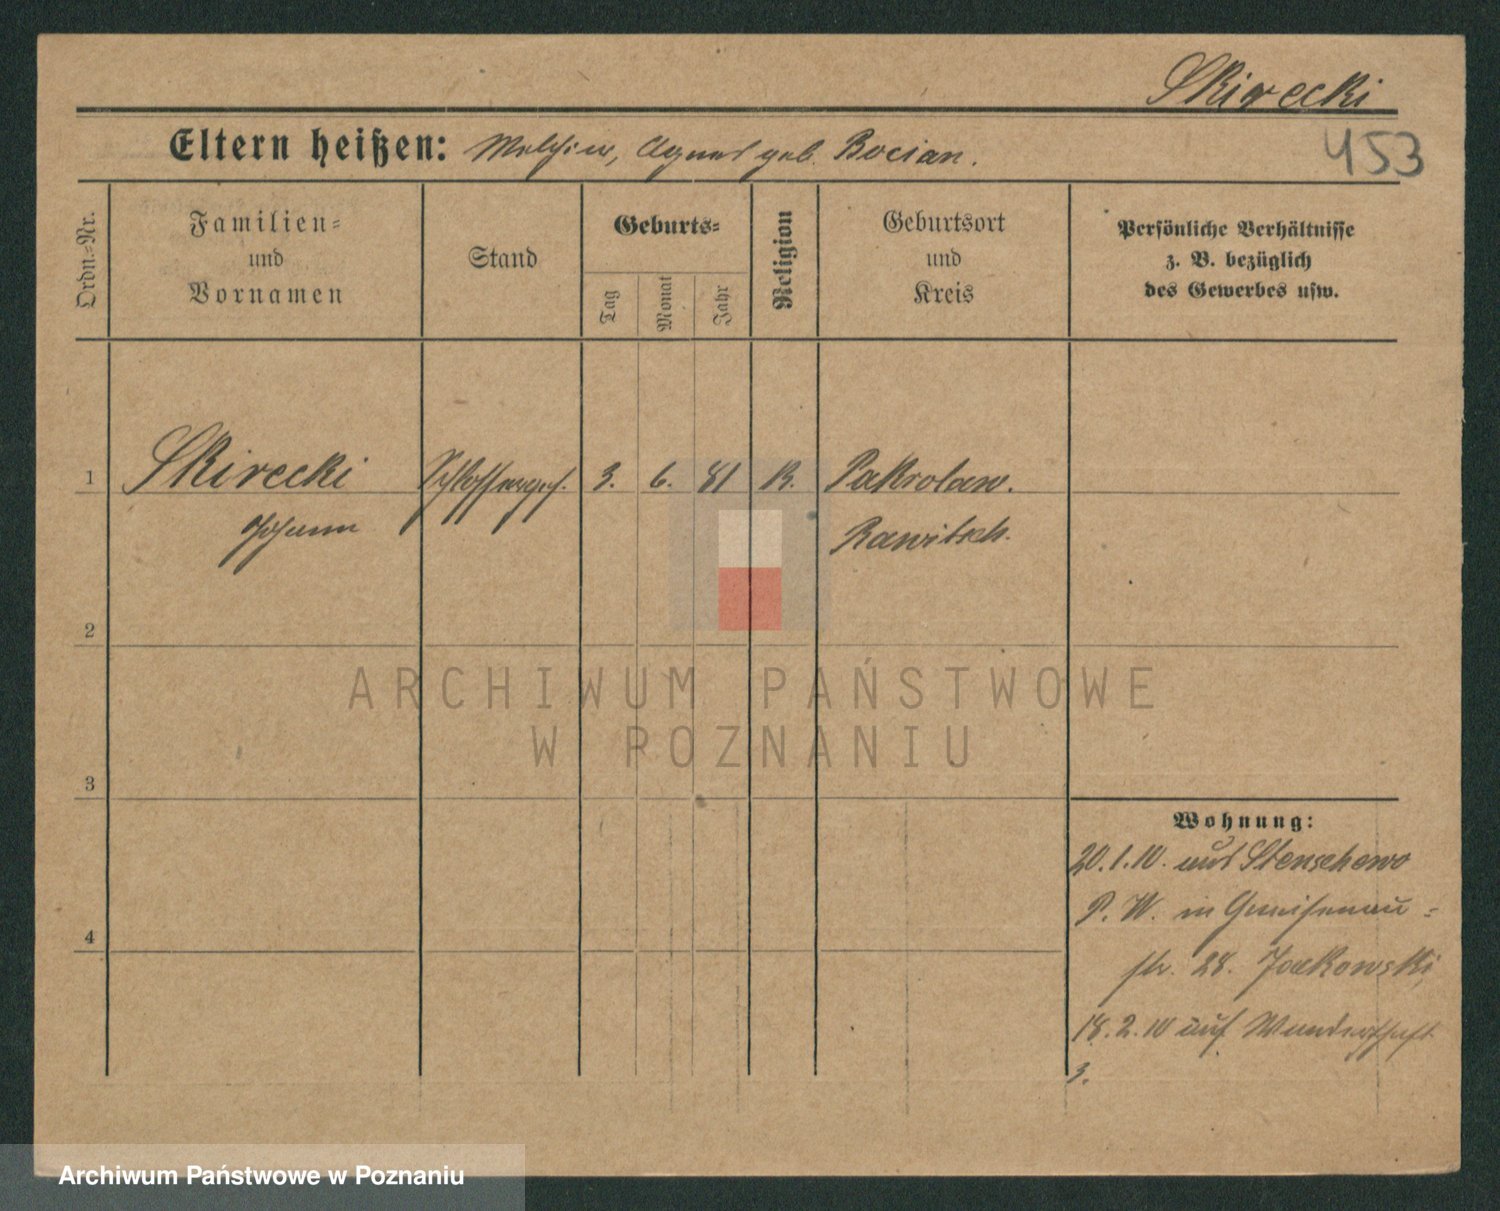 Skirecki
453
Eltern heißen: Melchior, Agnes geb. Bocian.
Ordn.-Nr.
Familien=
und
Vornamen
Stand
Geburts=
Tag
Monat
Jahr
Religion
Geburtsort
und
Kreis
Persönliche Verhältnisse
z. B. bezüglich
des Gewerbes usw.
1 Skirecki Schlosserges. 3. 6. 81 K. Pakrolaw.
Johann Rawitsch.
2
3
4
Wohnung:
20.1.10. aus Stenschewo
P. W. in Gneisenau=
str. 28. Jackowski,
18.2.10 auf Wanderschaft
3.
ARCHIWUM PAŃSTWOWE
W POZNANIU
Archiwum Państwowe w Poznaniu